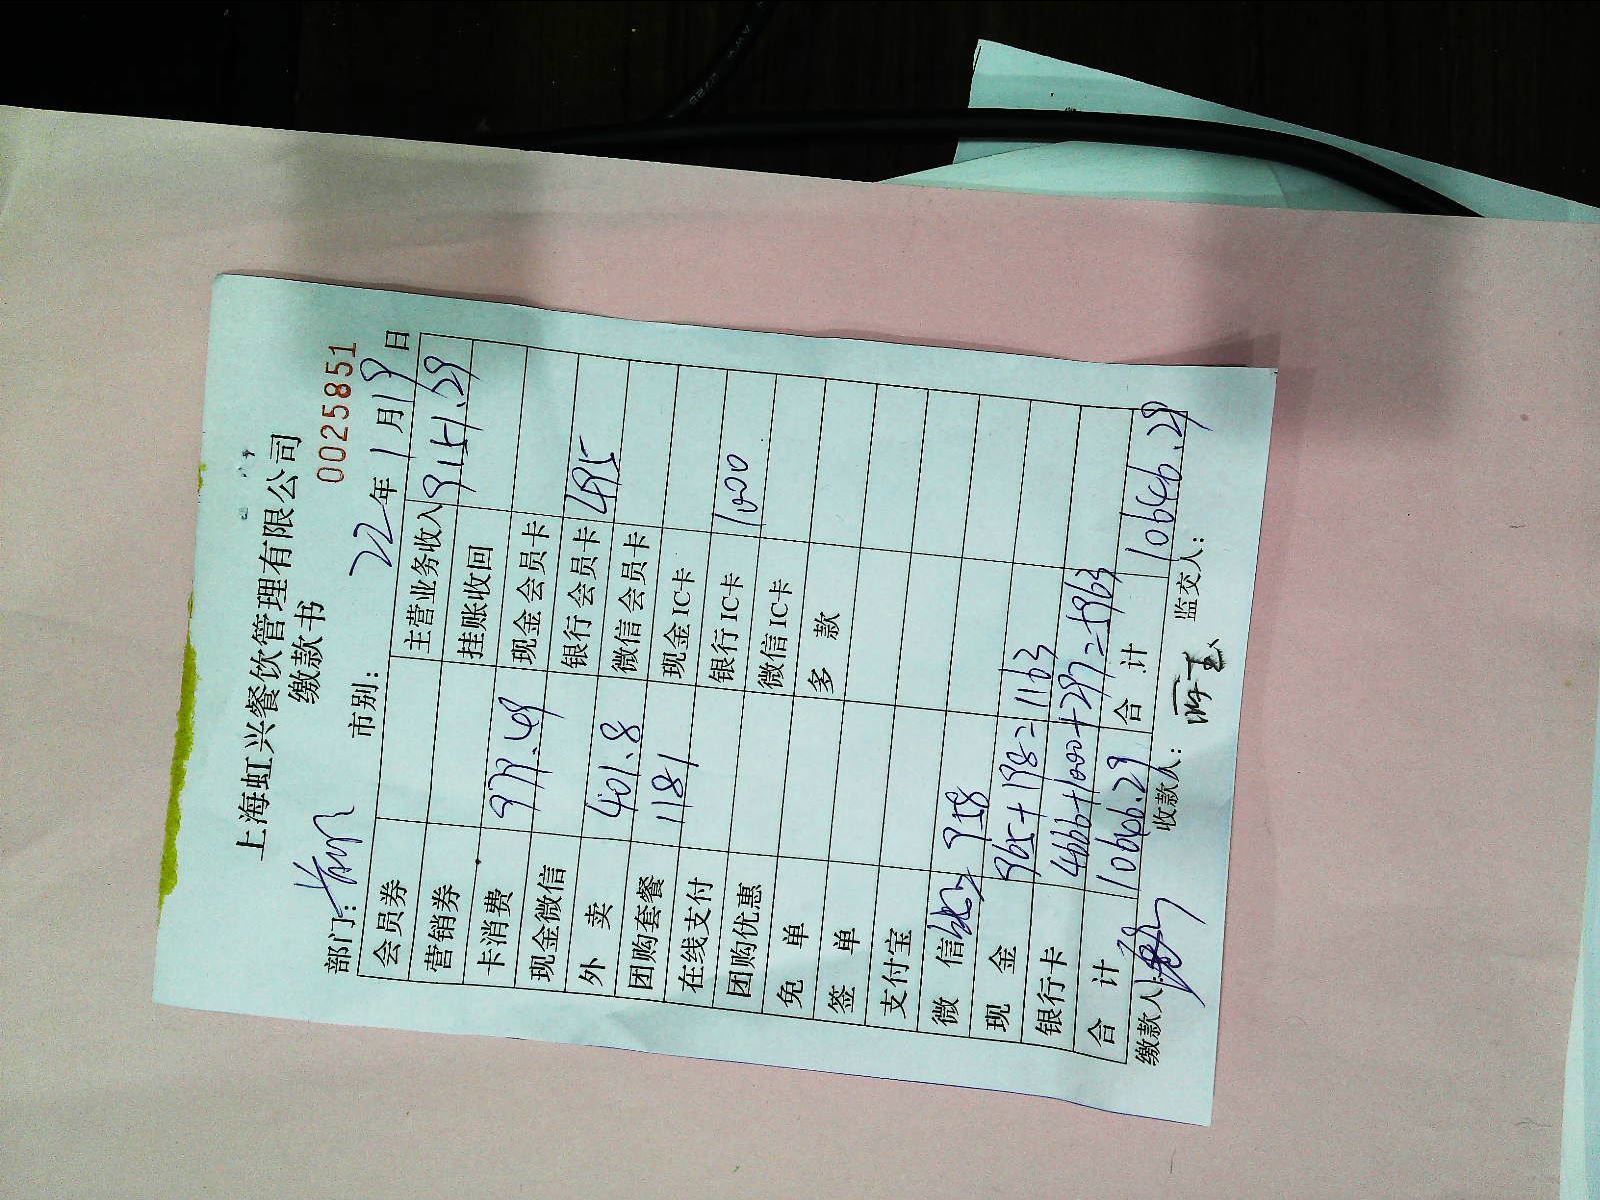 上海虹兴餐饮管理有限公司
缴款书
0025851
部门: 市别: 22年1月19日
会员券 主营业务收入 9151.29
营销券 挂账收回
卡消费 979.49 现金会员卡
现金微信 银行会员卡 495
外 卖 401.8 微信会员卡
团购套餐 1181 现金IC卡
在线支付 银行IC卡 1000
团购优惠 微信IC卡
免 单 多 款
签 单
支付宝
微 信 958
现 金 965+198=1163
银行卡 4666+1000+297=5963
合 计 10646.29 合 计 10646.29
缴款人: 收款人: 监交人: